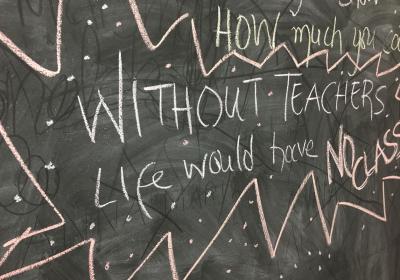 HOW much you
WITHOUT TEACHERS
Life would have NO CLASS